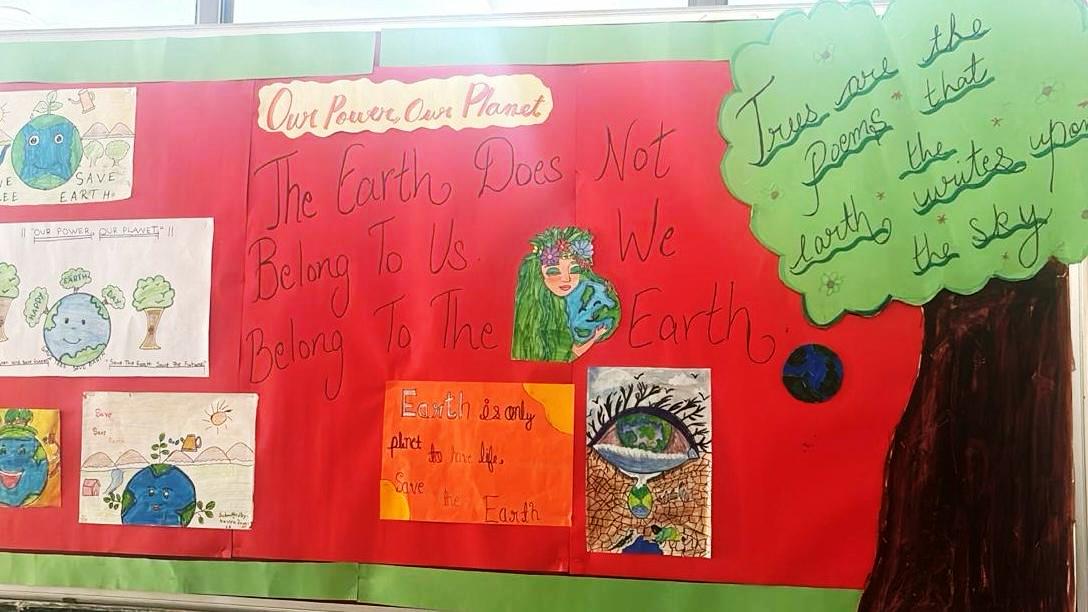 Our Power, Our Planet
The Earth Does Not
Belong To Us. We
Belong To The Earth.
Trees are the
Poems that
the
earth writes upon
the sky
SAVE
EARTH
|| "OUR POWER, OUR PLANET" ||
HAPPY EARTH DAY
"Save The Earth Save The Future"
Save
Save
Earth is only
planet
to have life,
Save the Earth